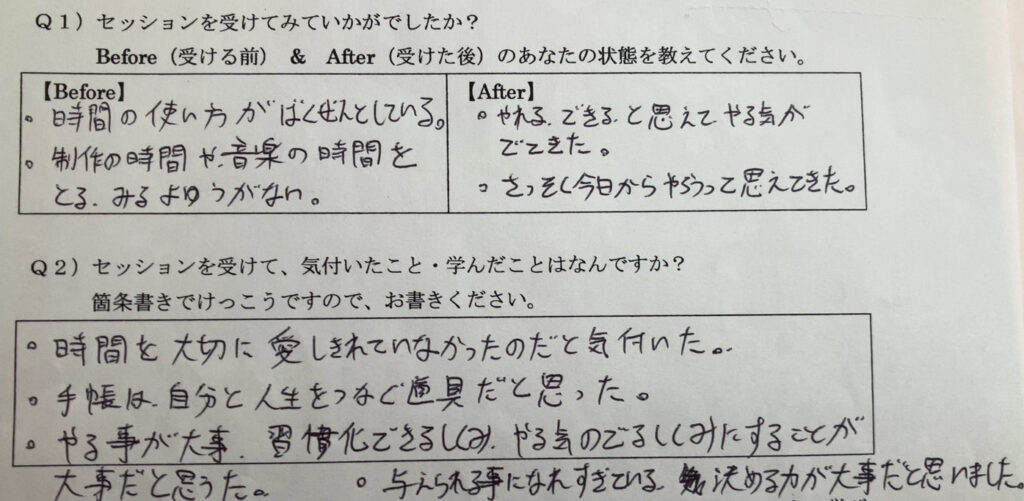 Q1）セッションを受けてみていかがでしたか？
Before（受ける前） & After（受けた後）のあなたの状態を教えてください。
【Before】
。時間の使い方がばくぜんとしている。
。制作の時間や、音楽の時間を
とる、みるよゆうがない。
【After】
。やれる、できると思えてやる気が
でてきた。
。さっそく今日からやろうって思えてきた。
Q2）セッションを受けて、気付いたこと・学んだことはなんですか？
箇条書きでけっこうですので、お書きください。
。時間を大切に愛しきれていなかったのだと気付いた。
。手帳は、自分と人生をつなぐ道具だと思った。
。やる事が大事、習慣化できるしくみ、やる気のでるしくみにすることが
大事だと思うた。 。与えられる事になれすぎている、決める力が大事だと思いました。